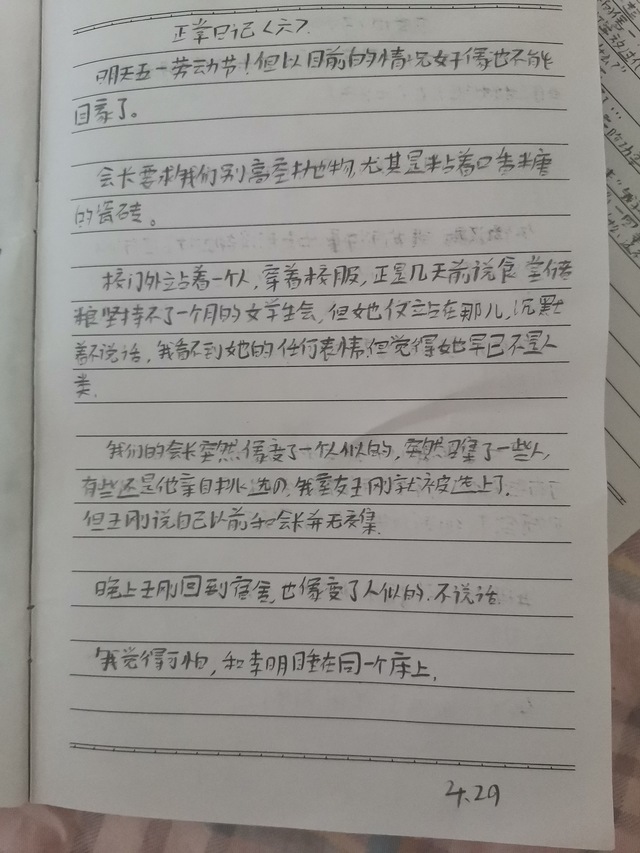 正常日记（六）.
明天五一劳动节！但以目前的情况好像也不能
回家了。
会长要求我们别高空抛物，尤其是粘着口香糖
的瓷砖。
校门外立占着一个人，穿着校服，正是几天前说食堂储
粮坚持不了一个月的女学生会，但她仅立占在那儿，沉默
着不说话，我看不到她的任何表情，但觉得她早已不是人
类.
我们的会长突然像变了一个人似的，突然召集了一些人，
有些还是他亲自挑选的，我室友王刚就被选上了，
但王刚说自己以前和会长并无交集.
晚上王刚回到宿舍，也像变了人似的.不说话.
我觉得可怕，和李明睡在同一个床上.
4.29